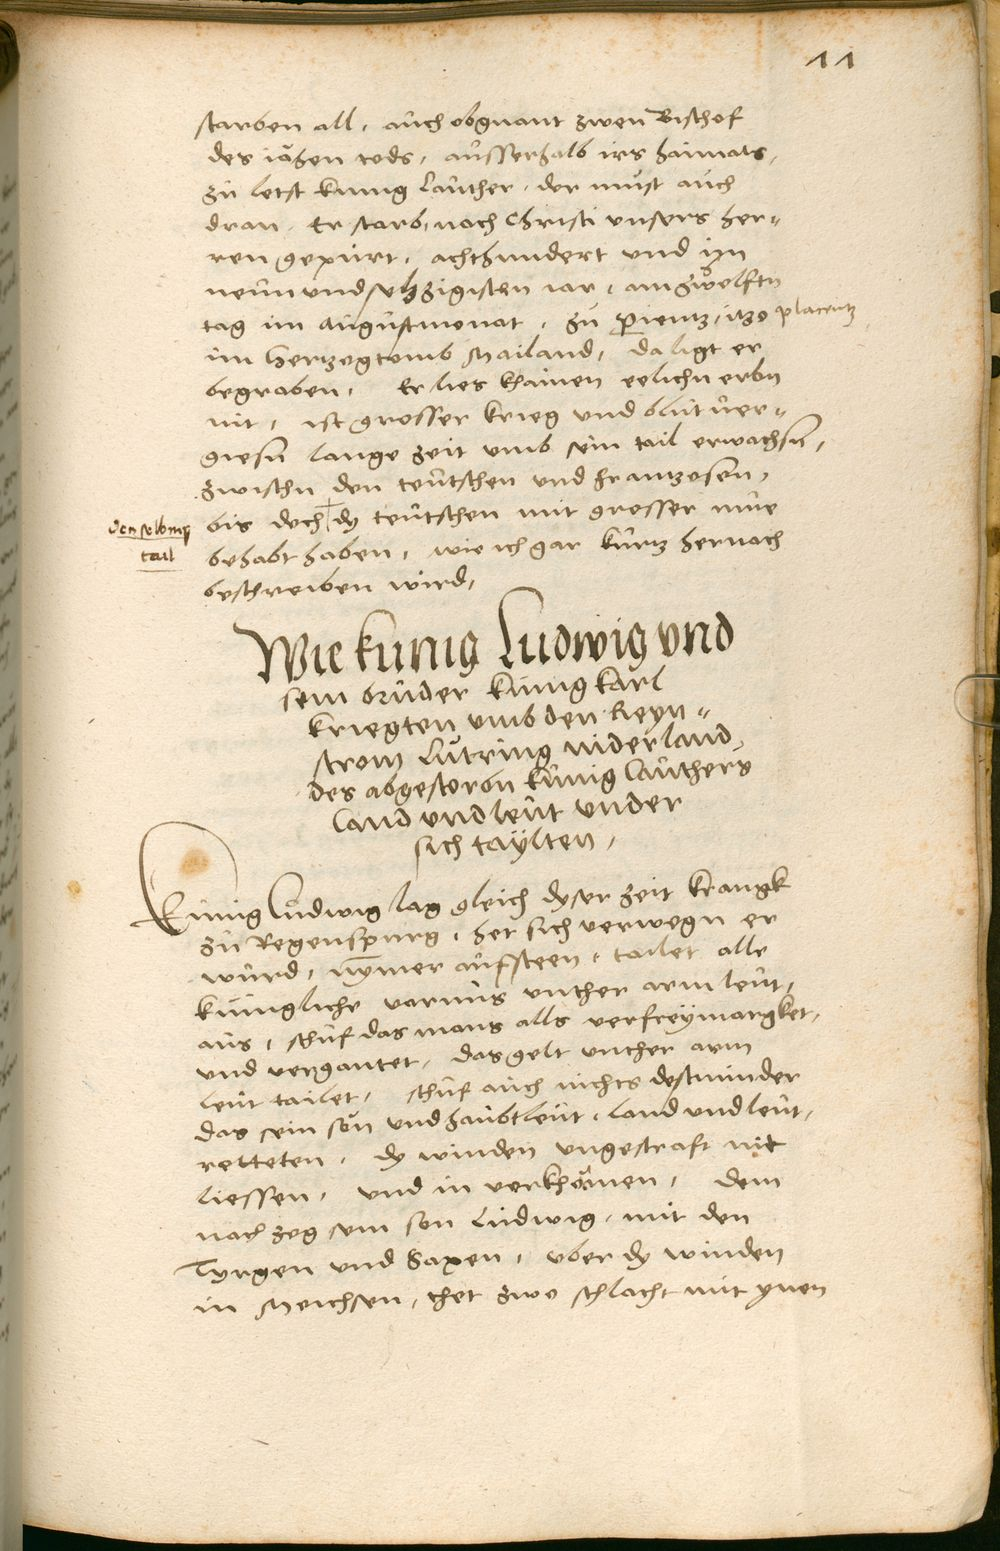 11
starben all, auch obgnant zwen Bischof
des iähen tods, ausserhalb irs haimats,
zu letst kunig Lauther, der must auch
dran. Er starb, nach Christi unsers her=
ren gepurt, achthundert und im
neun und sechzigisten iar, am zwelften
tag im Augustmonat, zu Pientz, itzo placentz
im Hertzogtomb Mailand, da ligt er
begraben, Er lies khainen eelichn erbn
nit, ist grosser krieg und blutver=
giesn lange zeit umb sein tail erwachsn,
zwischn den teutschen und Frantzosen,
denselbing
tail
bis doch dy teutschen mit grosser mue
behabt haben, wie ich gar kurtz hernach
beschreiben wird,
Wie kunig Ludwig und
sein bruder kunig karl
kriegten umb den Reyn=
strom Lutring niderland,
des abgestorbn kunig Lauthers
land und leut under
sich taÿlten,
Kunig Ludwig lag gleich dyser zeit krangk
zu Regenspurg, het sich verwegn er
wurd, nymer aufsteen, tailet alle
kunigliche varnus unther arm leut,
aus, schuf das mans alls verfreymargket,
und vergantet, das gelt unther arm
leut tailet, schuf auch nichts destminder
das sein sun und haubtleut, land und leut,
retteten, dy winden ungestraft nit
liessen, und in verkhömen, dem
nach zog sein son Ludwig, mit den
Tyrgen und Saxen, uber dy winden
in Meichsen, thet zwo schlacht mit ynen